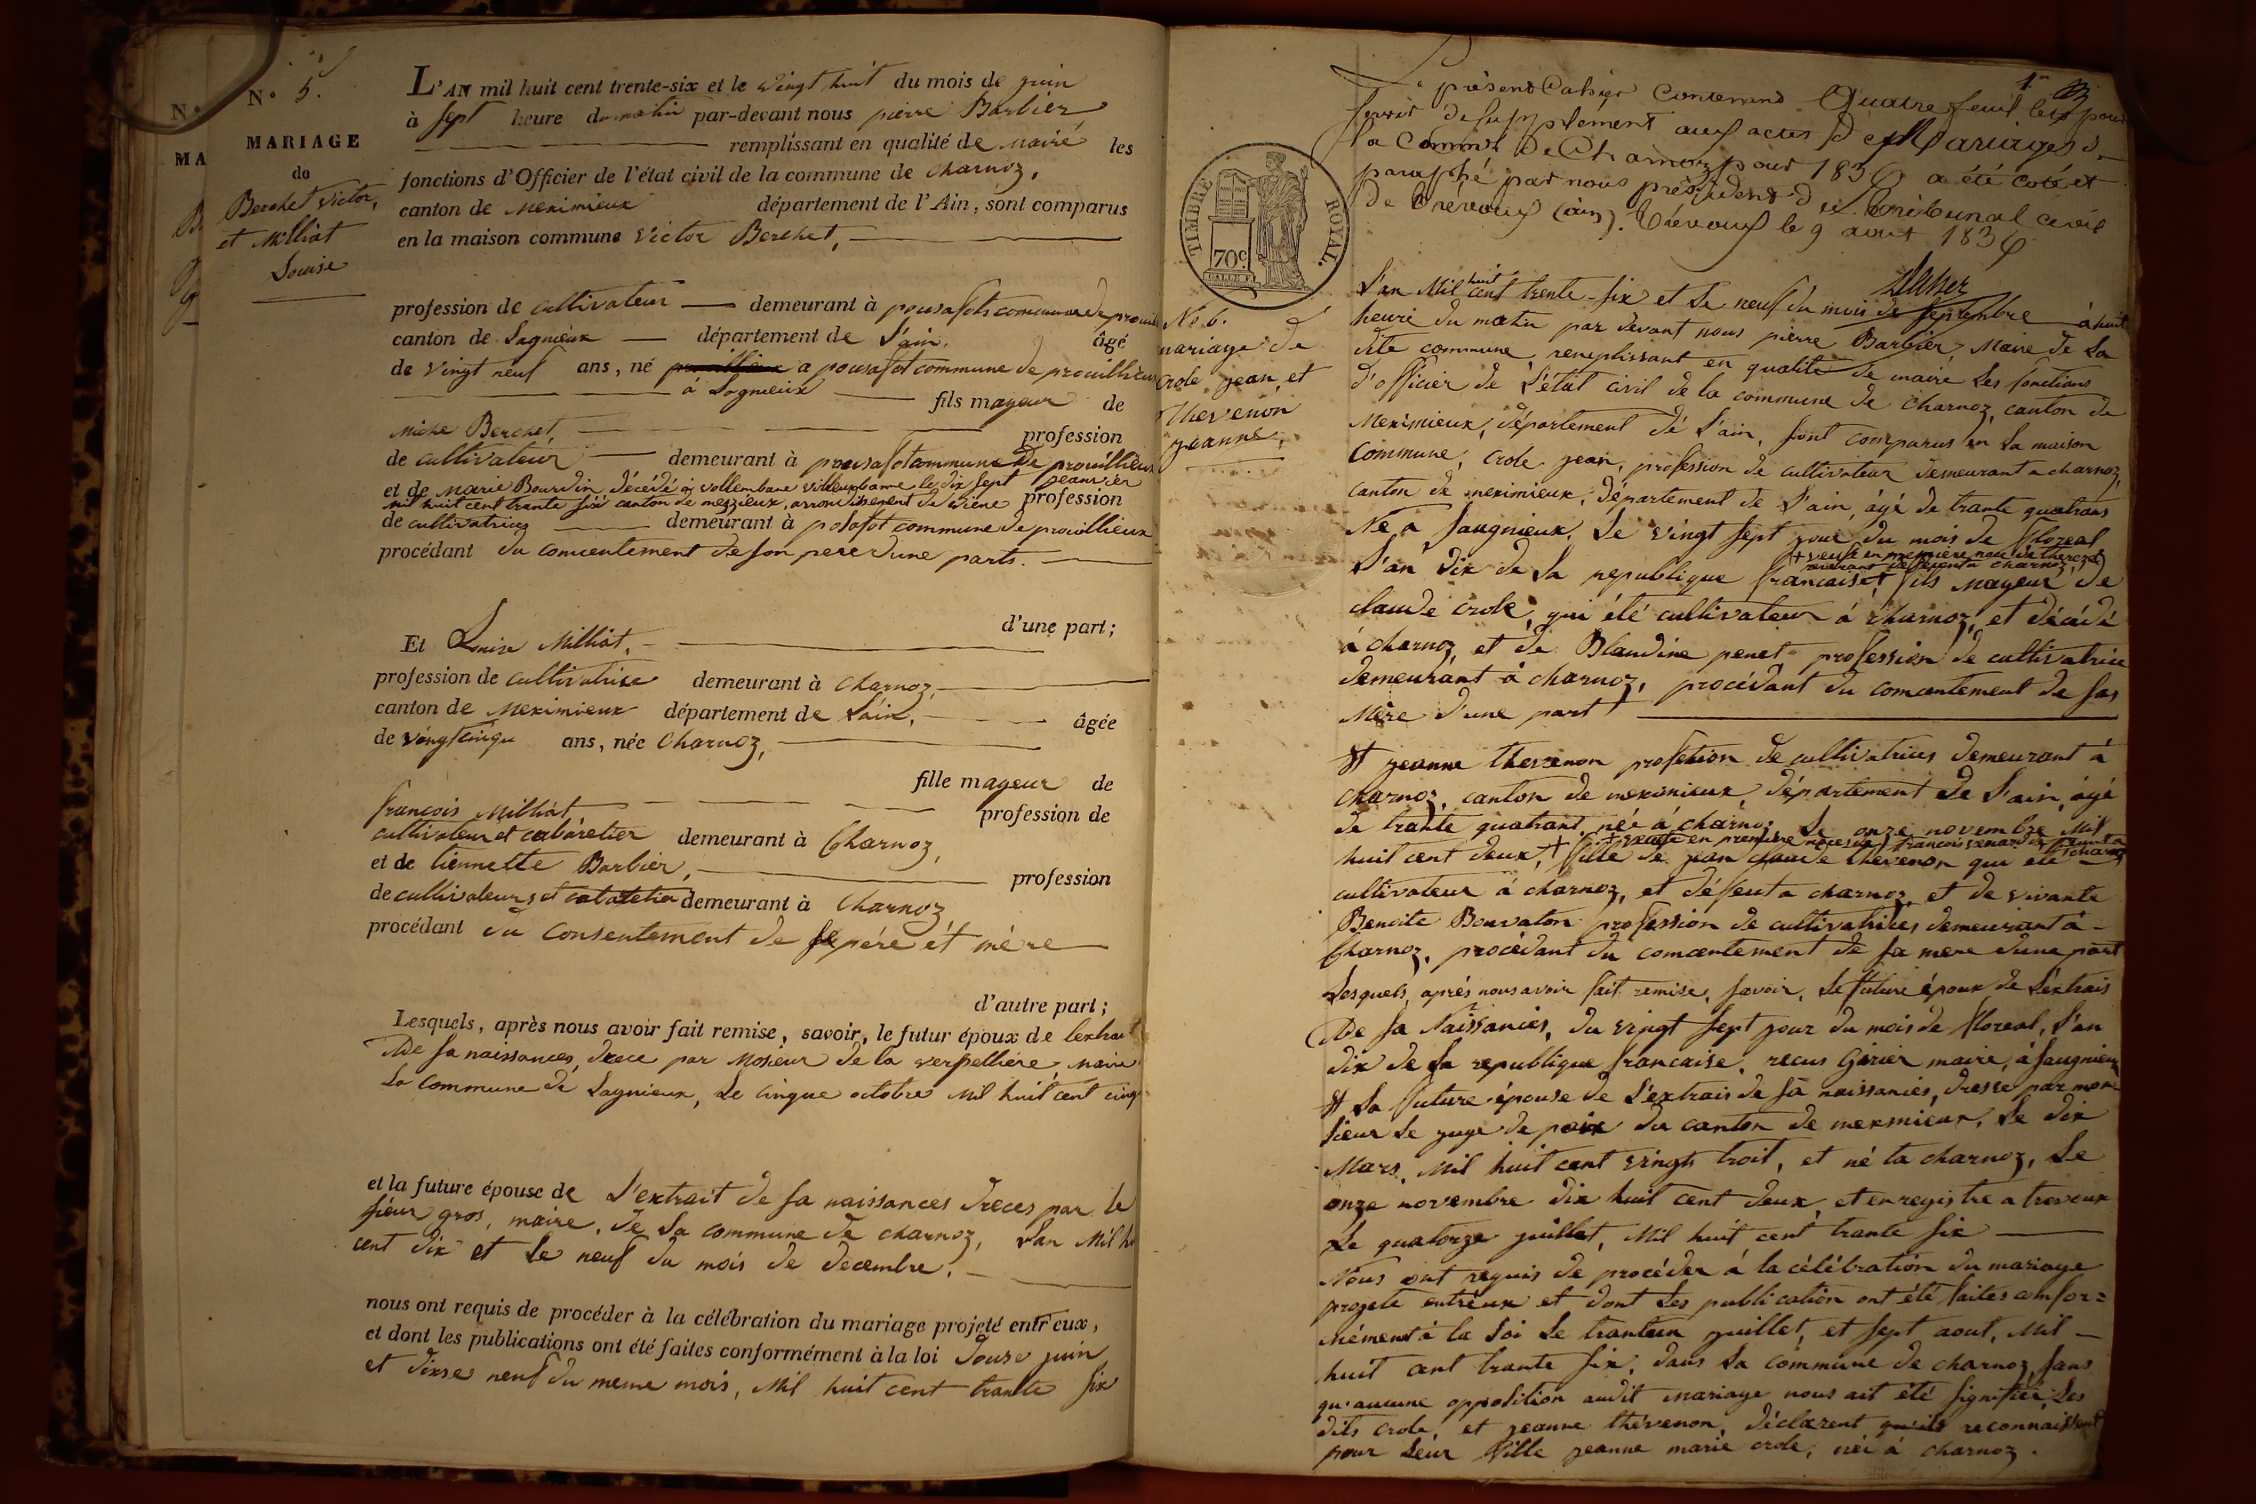 N.
MA
N. 5.
MARIAGE
de
Berchet Victor,
et Milliat
Louise
L'AN mil huit cent trente-six et le vingt huit du mois de juin
à sept heure du matin par-devant nous pierre Barbier
remplissant en qualité de maire les
fonctions d'Officier de l'état civil de la commune de Charnoz,
canton de Meximieux département de l'Ain, sont comparus
en la maison commune Victor Berchet,
profession de cultivateur demeurant à pousafots commune de
canton de Lagnieux département de l'ain, âgé
de vingt neuf ans, né a pousafot commune de prouillieux
à Lagnieux fils mayeur de
Berchet, profession
de cultivateur demeurant à pousafot commune de prouillieux
et de Marie Bourdin décédé villeurbanne le dix sept jeanvier
mil huit cent trante six canton de mezzieux, arrondissement de viene profession
de cultivatrices demeurant à posofot commune de prouillieux
procédant du concentement de son pere dune parts.
d'une part;
Et Louise Milliat,
profession de cultivatrice demeurant à Charnoz,
canton de Meximieux département de L'ain, âgée
de vingt cinqu ans, née Charnoz,
fille mayeur de
françois Milliat profession de
cultivateur et cabaretier demeurant à Charnoz,
et de tiennette Barbier, profession
de cultivateurs et cabaretier demeurant à Charnoz
procédant du consentement de père et mère
d'autre part;
Lesquels, après nous avoir fait remise, savoir, le futur époux de lextrait
De sa naissances, drece par Mosieur de la verpelliere, maire
La commune de Lagnieux, Le cinque octobre Mil huit cent cinq
et la future épouse de L'extrait de sa naissances dreces par le
sieur gros, maire, de La commune de charnoz, Lan Mil hu
cent dix et Le neuf du mois de decembre.
nous ont requis de procéder à la célébration du mariage projeté entr'eux,
et dont les publications ont été faites conformément à la loi douse juin
et dixse neuf du meme mois, Mil huit cent trante six
1er
Le présent Cahier contenant quatre feuillets pour
servir de supplement aux actes de Mariages de
la commune De Charnoz pour 1836 a été coté et
paraphé par nous président du tribunal civil
De Trévoux (ain). Trévoux le 9 aout 1836
TIMBRE ROYAL.
70c.
No. 6.
mariage de
Crole jean et
Thevenon
jeanne.
L'an Mil huit cent trente-six et Le neuf du mois de septembre à huit
heure du matin par devant nous pierre Barbier, Maire de La
dite commune, remplissant en qualité de maire les fonctions
d'officier de L'état civil de la commune de charnoz, canton de
Meximieux, département de L'ain, sont comparus en La maison
commune, Crole jean, profession de cultivateur demeurant a charnoz,
canton de meximieux, département de L'ain, âgé de trante quatrans
Né à saugnieux, Le vingt sept jour du mois de floreal
+ veufe en premiere noce de
L'an dix de La republique francaise, + fils mayeur de
claude crole, qui été cultivateur à charnoz, et décédé
à charnoz, et de Blandine penet profession de cultivatrice
demeurant à charnoz, procédant du concentement de sas
Mère d'une part
Et jeanne thevenon profession de cultivatrices demeurant à
charnoz, canton de meximieux, département de L'ain, âgé
de trante quatrant, née à charnoz Le onze novembre Mil
+ veufe en premiere noces de françois
huit cent deux, + fille de jean claude thevenon qui été
cultivateur à charnoz, et défeut a charnoz et de vivante
Benoite Bouvaton profession de cultivatrices demeurant à
Charnoz, procédant du concentement de sa mere dune part
Lesquels, après nous avoir fait remise, savoir, Le future époux de L'extrais
De sa Naissances, du vingt sept jour du mois de floreal, L'an
dix de La republique francaise, recus Girier maire, à saugnieux
Et La future épouse de L'extrais de sa naissances, dresse par mon
sieur Le juge de paix du canton de meximieux, Le dix
Mars, Mil huit cent vingts troit, et né ta charnoz, Le
onze novembre dix huit cent deux, et enregistre a treveux
Le quatorze juillet, Mil huit cent trante six
Nous ont requis de procéder à la célébration du mariage
projete entréux et dont Les publication ont été faites confor=
mément à la Loi Le trantun juillet, et sept aout, Mil
huit cent trante six, dans La commune de charnoz, sans
qu'aucune opposition audit mariage nous ait été signifiée, Les
dits crole, et jeanne thévenon, déclarent qu'ils reconnaissent
pour Leur fille jeanne marie crole, née à charnoz.